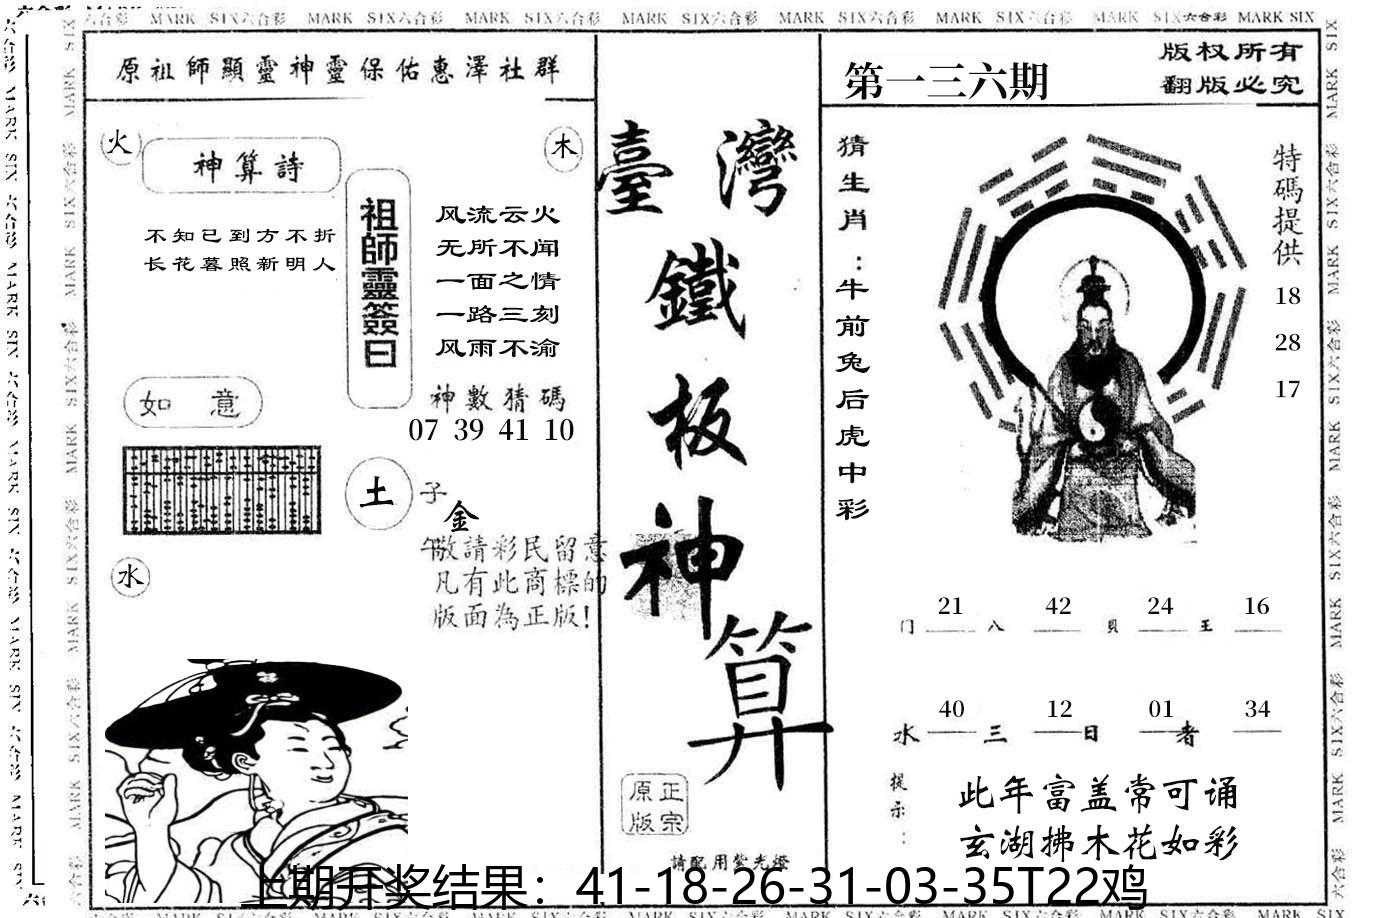 MARK SIX六合彩 MARK SIX六合彩 MARK SIX六合彩 MARK SIX六合彩 MARK SIX六合彩 MARK SIX六合彩 MARK SIX六合彩 MARK SIX
原祖師顯靈神靈保佑惠澤社群
火
神算詩
木
不知已到方不折
长花暮照新明人
祖師靈簽曰
风流云火
无所不闻
一面之情
一路三刻
风雨不渝
如意
神數猜碼
07 39 41 10
土
子
金
午
敬請彩民留意
凡有此商標的
版面為正版!
水
臺灣
鐵
板
神
算
原正
版宗
請配用紫光燈
第一三六期
版权所有
翻版必究
猜生肖:牛前兔后虎中彩
特碼提供
18
28
17
门 21 八 42 貝 24 王 16
水 40 三 12 日 01 者 34
提示:
此年富盖常可诵
玄湖拂木花如彩
上期开奖结果：41-18-26-31-03-35T22鸡